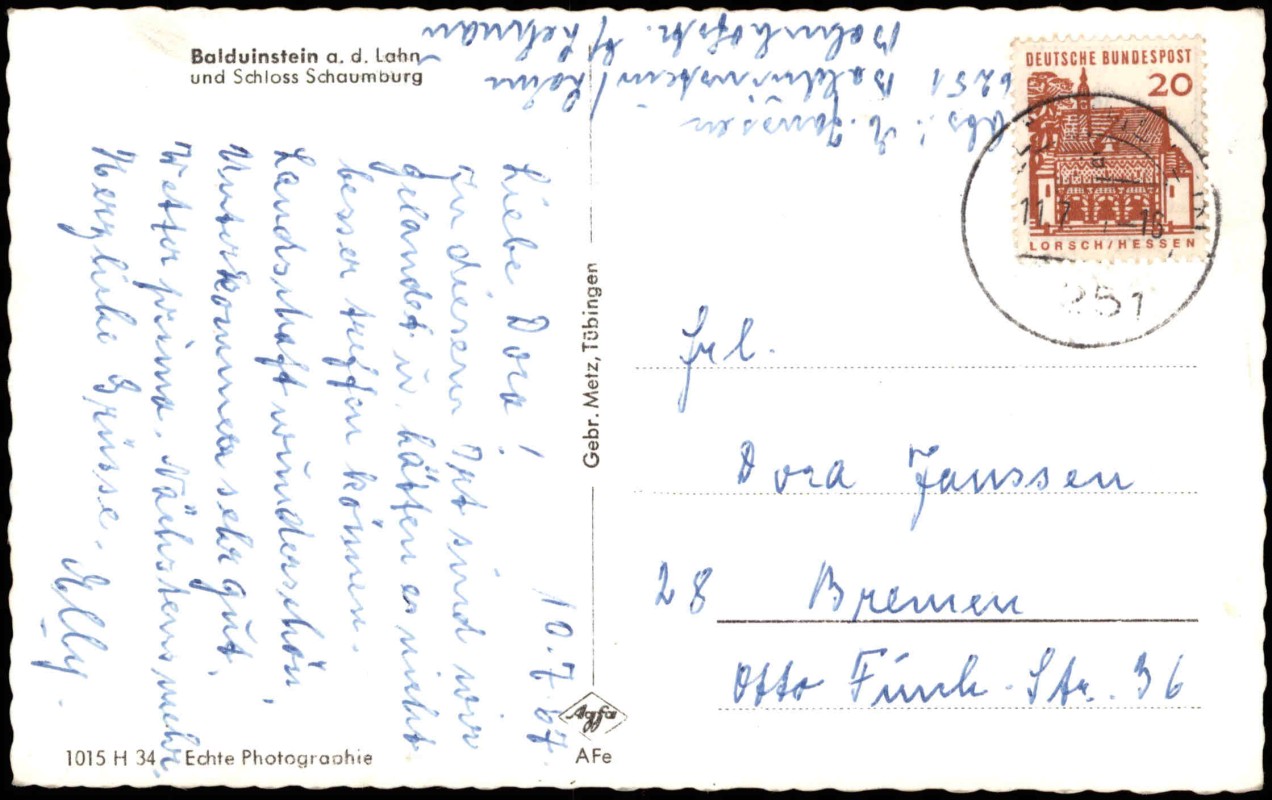 Balduinstein a. d. Lahn
und Schloss Schaumburg
Abs.: E. Janssen
6251 Balduinstein/Lahn
Bahnhofstr. b/Lehman
DEUTSCHE BUNDESPOST
20
LORSCH/HESSEN
11.7.
-16
251
10.7.67
Liebe Dora!
In diesem Ort sind wir
gelandet u. hätten es nicht
besser treffen können.
Landschaft wunderschön,
Unterkommen sehr gut,
Wetter prima. Nächstens mehr.
Herzliche Grüsse. Elly.
Gebr. Metz, Tübingen
Frl.
Dora Janssen
28 Bremen
Otto Finch-Str. 36
1015 H 34 Echte Photographie
Agfa
AFe